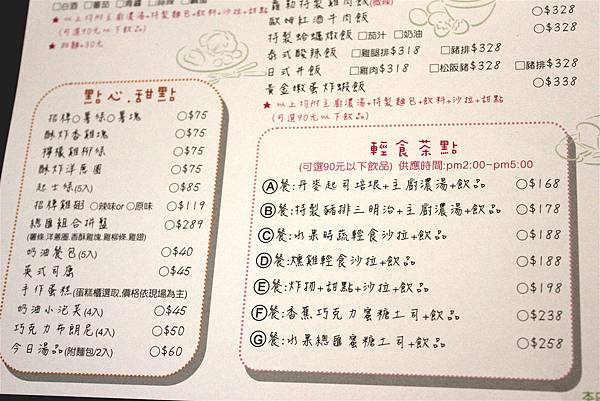 □白酒 □蕃茄 □青醬
★以上均附主廚濃湯+特製麵包+飲料+沙拉+甜點
(可選90元以下飲品)
★焗麵+30元
特製牛肉飯(微辣) ○$328
歐姆紅酒牛肉飯 ○$328
特製蛤蠣燉飯□茄汁 □奶油 ○$328
泰式酸辣飯 □雞腿排$318 □豬排$328
日式丼飯 □雞肉$318 □松阪豬$328 □豬排$328
黃金嫩蛋炸蝦飯 ○$338
★以上均附主廚濃湯+特製麵包+飲料+沙拉+甜點
(可選90元以下飲品)
點心.甜點
招牌○薯條○薯塊 ○$75
酥炸香雞塊 ○$75
檸檬雞柳條 ○$75
酥炸洋蔥圈 ○$75
起士條(5入) ○$85
招牌雞翅 ○辣味or ○原味 ○$119
總匯組合拼盤 ○$289
(薯條.洋蔥圈.香酥雞塊.雞柳條.雞翅)
奶油餐包(5入) ○$40
英式司康 ○$45
手作蛋糕(蛋糕櫃選取,價格依現場為主)
奶油小泡芙(4入) ○$45
巧克力布朗尼(4入) ○$50
今日湯品(附麵包/2入) ○$60
輕食茶點
(可選90元以下飲品) 供應時間:pm2:00~pm5:00
Ⓐ餐:丹麥起司培根+主廚濃湯+飲品 ○$168
Ⓑ餐:特製豬排三明治+主廚濃湯+飲品 ○$178
Ⓒ餐:水果時蔬輕食沙拉+飲品 ○$188
Ⓓ餐:燻雞輕食沙拉+飲品 ○$188
Ⓔ餐:炸物+甜點+沙拉+飲品 ○$198
Ⓕ餐:香蕉巧克力蜜糖土司+飲品 ○$238
Ⓖ餐:水果總匯蜜糖土司+飲品 ○$258